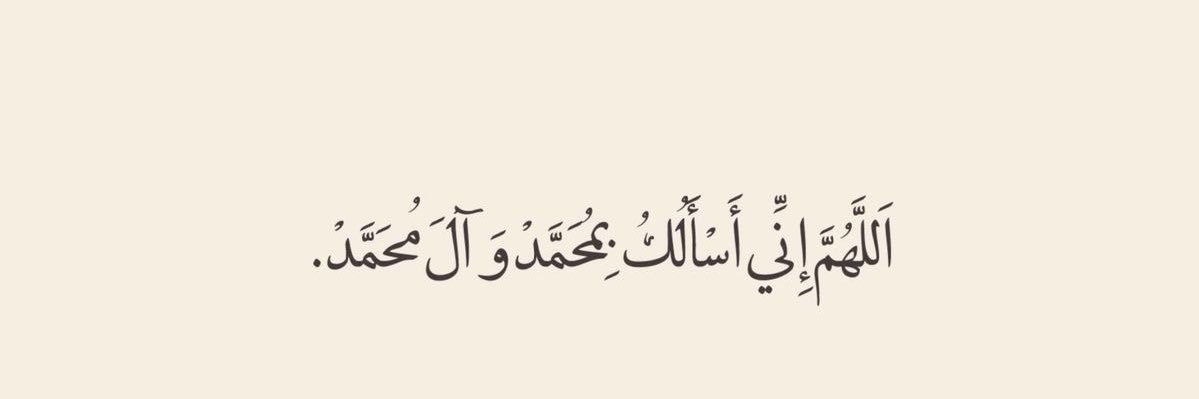 اَللَّهُمَّ إِنِّي أَسْأَلُكُ بِمُحَمَّدْ وَ آلَ مُحَمَّدْ.